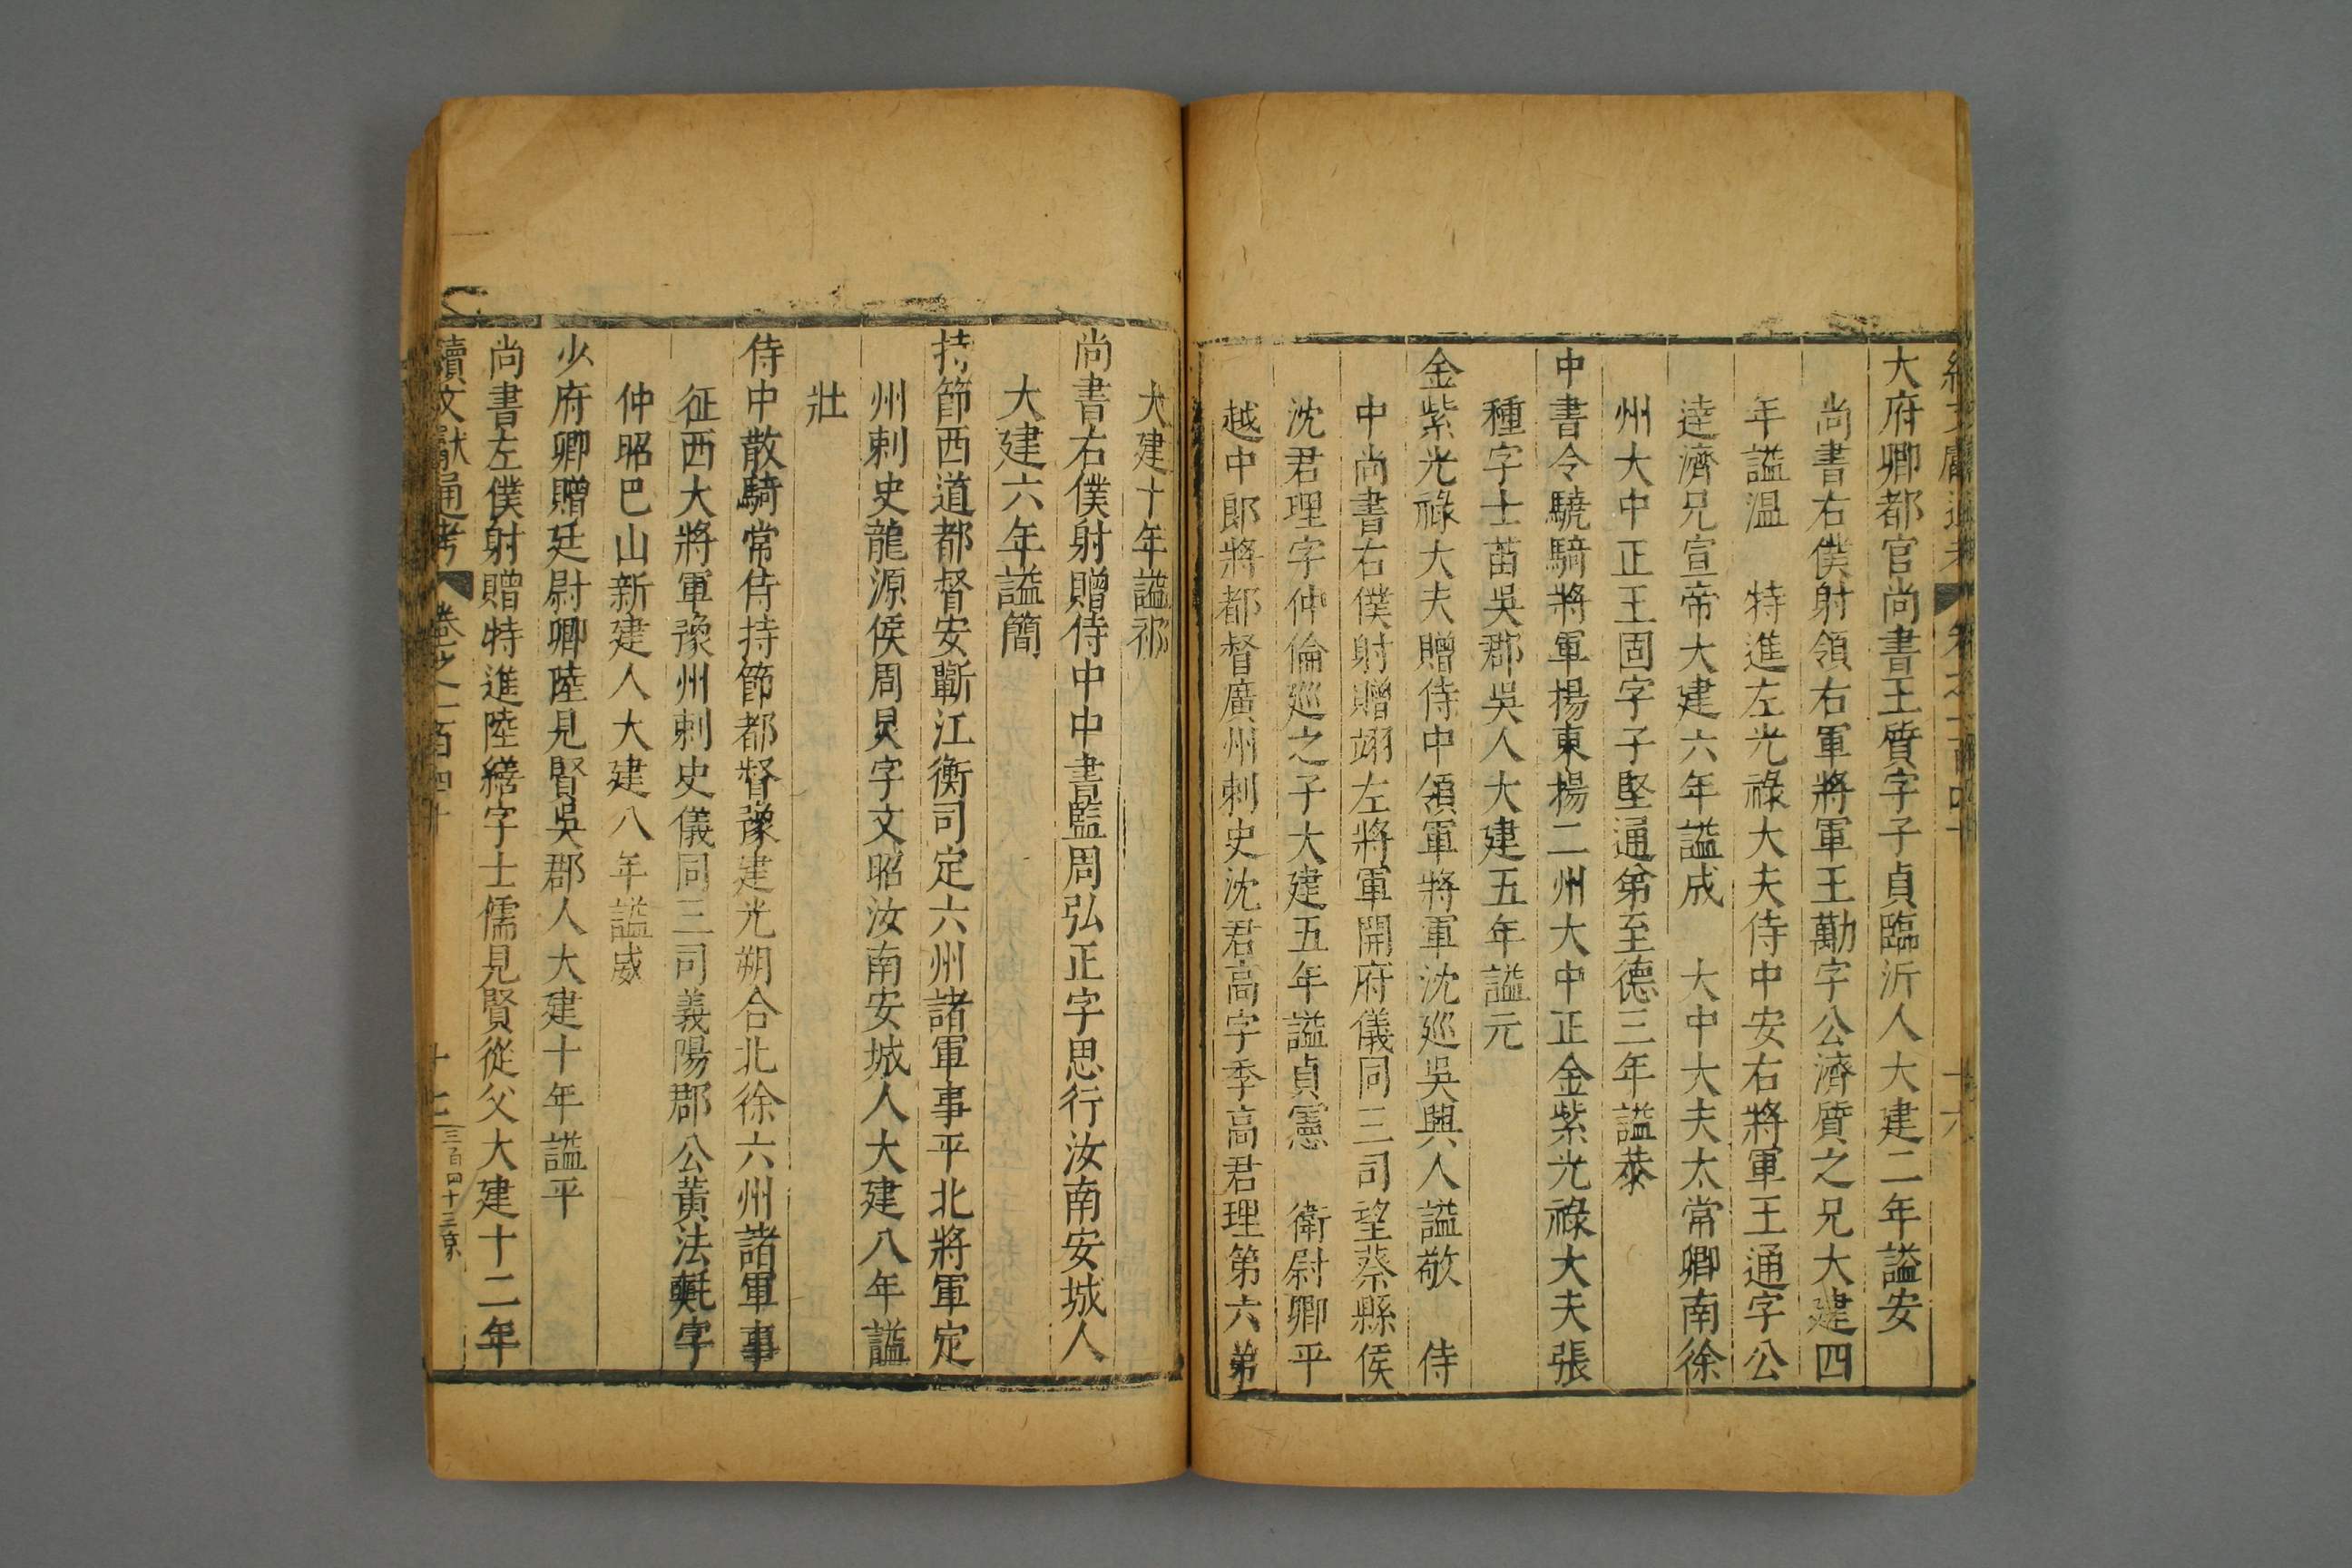 大府卿都官尚書王質字子貞臨沂人大建二年謚安
尚書右僕射領右軍將軍王勱字公濟質之兄大建四
年謚溫　特進左光祿大夫侍中安右將軍王通字公
達濟兄宣帝大建六年謚成　大中大夫太常卿南徐
州大中正王固字子堅通弟至德三年謚恭
中書令驍騎將軍揚東揚二州大中正金紫光祿大夫張
種字士苗吳郡吳人大建五年謚元
金紫光祿大夫贈侍中領軍將軍沈巡吳興人謚敬　侍
中尚書右僕射贈翊左將軍開府儀同三司望蔡縣侯
沈君理字仲倫巡之子大建五年謚貞憲　衛尉卿平
越中郎將都督廣州刺史沈君高字季高君理第六弟
大建十年謚祁
尚書右僕射贈侍中中書監周弘正字思行汝南安城人
大建六年謚簡
持節西道都督安蘄江衡司定六州諸軍事平北將軍定
州刺史龍源侯周炅字文昭汝南安城人大建八年謚
壯
侍中散騎常侍持節都督豫建光朔合北徐六州諸軍事
征西大將軍豫州刺史儀同三司義陽郡公黃法𣰰字
仲昭巴山新建人大建八年謚威
少府卿贈廷尉卿陸見賢吳郡人大建十年謚平
尚書左僕射贈特進陸繕字士儒見賢從父大建十二年
續文獻通考　卷之一百四十　十七　三百四十三